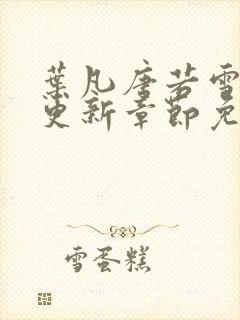 葉凡唐若雪
更新章節免
雪蛋糕